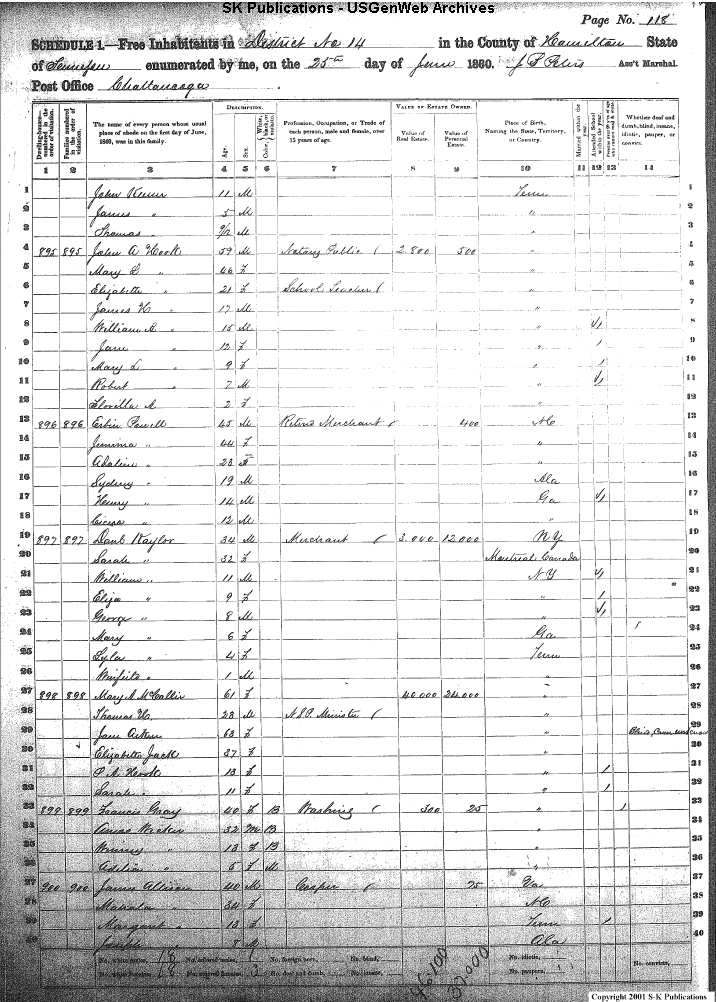 SK Publications - USGenWeb Archives
Page No. 118
SCHEDULE 1.—Free Inhabitants in District No 14 in the County of Hamilton State
of Tennessee enumerated by me, on the 25th day of June 1860. Ass't Marshal.
Post Office Chattanooga
Dwelling-house— numbered in the order of visitation.
Families numbered in the order of visitation.
The name of every person whose usual place of abode on the first day of June, 1860, was in this family.
DESCRIPTION.
Age.
Sex.
Color, White, black, or mulatto.
Profession, Occupation, or Trade of each person, male and female, over 15 years of age.
VALUE OF ESTATE OWNED.
Value of Real Estate.
Value of Personal Estate.
Place of Birth, Naming the State, Territory, or Country.
Married within the year.
Attended School within the year.
Whether deaf and dumb, blind, insane, idiotic, pauper, or convict.
1 2 3 4 5 6 7 8 9 10 11 12 13 14
1 John 11 M Tenn 1
2 James " 5 M " 2
3 Thomas " 9/12 M " 3
4 895 895 John A Hook 59 M Notary Public 2.800 500 " 4
5 Mary " 46 F " 5
6 Elizabeth " 21 F School Teacher " 6
7 James H " 17 M " 7
8 William " 15 M " 8
9 Jane " 12 F " 9
10 Mary L " 9 F " 10
11 Robert " 7 M " 11
12 Flovilla A. 2 F " 12
13 896 896 Powell 45 M Merchant 400 NC 13
14 Jemima " 44 F " 14
15 Adaline " 23 F " 15
16 Sydney " 19 M Ala 16
17 Henry " 14 M Ga 17
18 Cicero " 12 M " 18
19 897 897 Danl Kaylor 34 M Merchant 3.000 12.000 NY 19
20 Sarah " 32 F Montreal Canada 20
21 William " 11 M NY 21
22 Eliza " 9 F " 22
23 George " 8 M " 23
24 Mary " 6 F Ga 24
25 Lyla " 4 F Tenn 25
26 Winfield " 1 M " 26
27 898 898 Mary A McCallie 61 F 40 000 24.000 " 27
28 Thomas H. 23 M N.S.P. Minister " 28
29 Jane Aiken 63 F " Blind, 29
30 Elizabeth Jack 37 F " 30
31 Hook 13 F " 31
32 Sarah " 11 F " 32
33 899 899 Francis Gray 40 F B Washing 300 25 " 33
34 Amos 32 M B " 34
35 " 13 F B " 35
36 " 5 F M " 36
37 900 900 James Allison 40 M Cooper 75 Va 37
38 Mahala " 34 F NC 38
39 Margaret " 13 F Tenn 39
40 Joseph " 8 M Ala 40
No. white males, 18 No. colored males, 1 No. foreign born, No. blind, No. idiotic,
No. white females, 18 No. colored females, 3 No. deaf and dumb, No. insane, 46.100 37.000 No. paupers, No. convicts,
Copyright 2001 S-K Publications